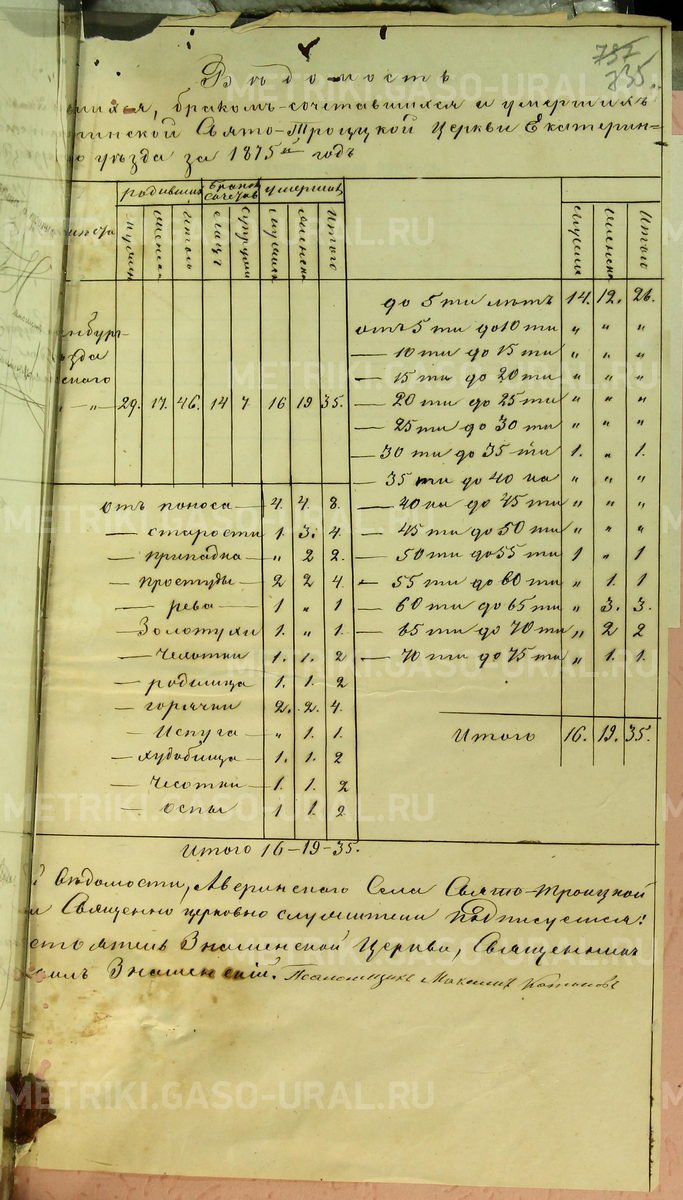 737
735.
Вѣдомость
вшихся, бракомъ-сочетавшихся и умершихъ
ринской Свято-Троицкой Церкви Екатерин=
уѣзда за 1875й годъ
родившихъ браков сочетав умершихъ
мужеск женска итого лицъ супруж мужеска женска Итого мужеска женска Итого
нбург-
ѣзда
ского
„ 29. 17. 46. 14 7 16 19 35.
до 5ти лѣтъ 14. 12. 26.
отъ 5 ти до 10 ти „ „ „
— 10 ти до 15 ти „ „ „
— 15 ти до 20 ти „ „ „
— 20 ти до 25 ти „ „ „
— 25 ти до 30 ти „ „ „
— 30 ти до 35 ти 1. „ 1.
35 ти до 40 ка „ „ „
— 40 ка до 45 ти „ „ „
— 45 ти до 50 ти „ „ „
— 50 ти до 55 ти 1 „ 1
— 55 ти до 60 ти „ 1. 1
— 60 ти до 65 ти „ 3. 3.
— 65 ти до 70 ти „ 2 2
— 70 ти до 75 ти „ 1. 1.
Итого 16. 19. 35.
отъ поноса — 4. 4. 8.
— старости 1. 3. 4.
— припадка — „ 2 2.
— простуды — 2 2 4.
— рева — 1 „ 1
— Золотухи 1. „ 1.
— Чехотки 1. 1. 2
— родимца 1. 1. 2
— горячки 2. 2. 4.
— Испуга — „ 1. 1.
— худобища — 1. 1. 2
— Чесотки — 1. 1. 2
— оспы 1 1. 2
Итого 16-19-35.
й вѣдомости, Аверинского Села Свято-Троицкой
и Священно церковно служители подписуемся:
стоятель Знаменской Церкви, Священникъ
аилъ Знаменскій. Псаломщикъ Максимъ
METRIKI.GASO-URAL.RU